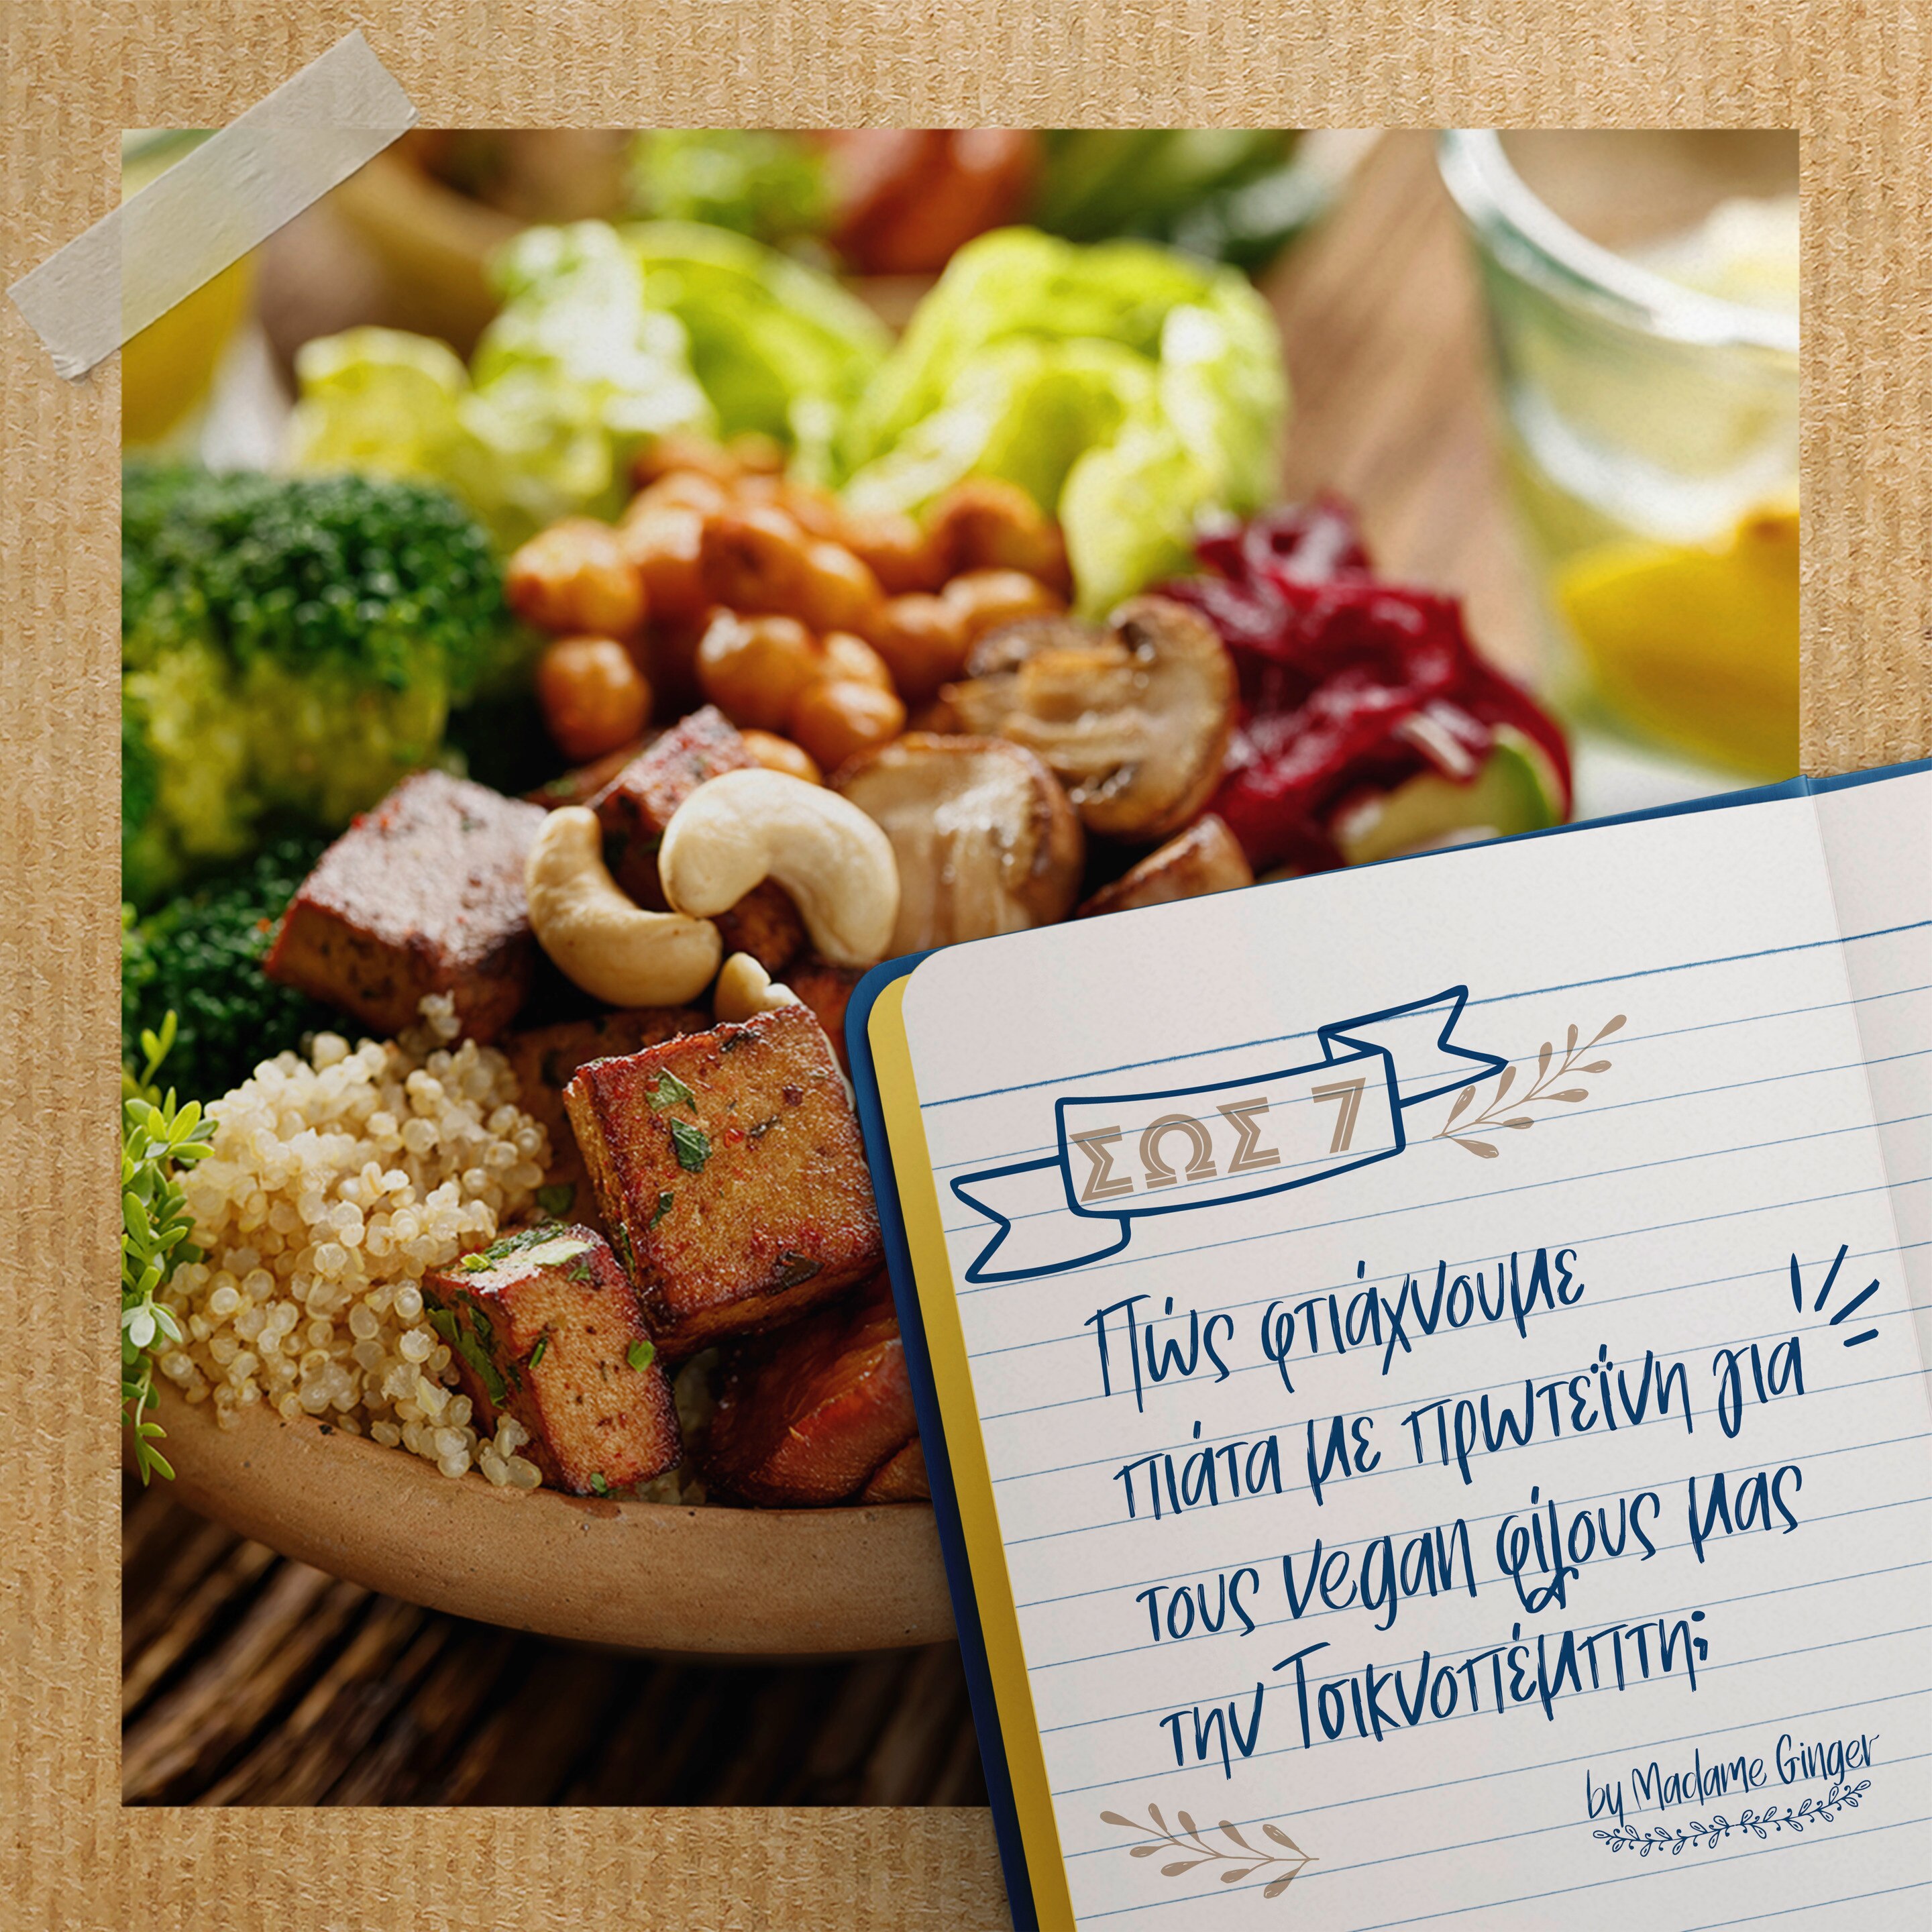 ΣΩΣ 7
Πώς φτιάχνουμε
πιάτα με πρωτεΐνη για
τους vegan φίλους μας
την Τσικνοπέμπτη;
by Madame Ginger